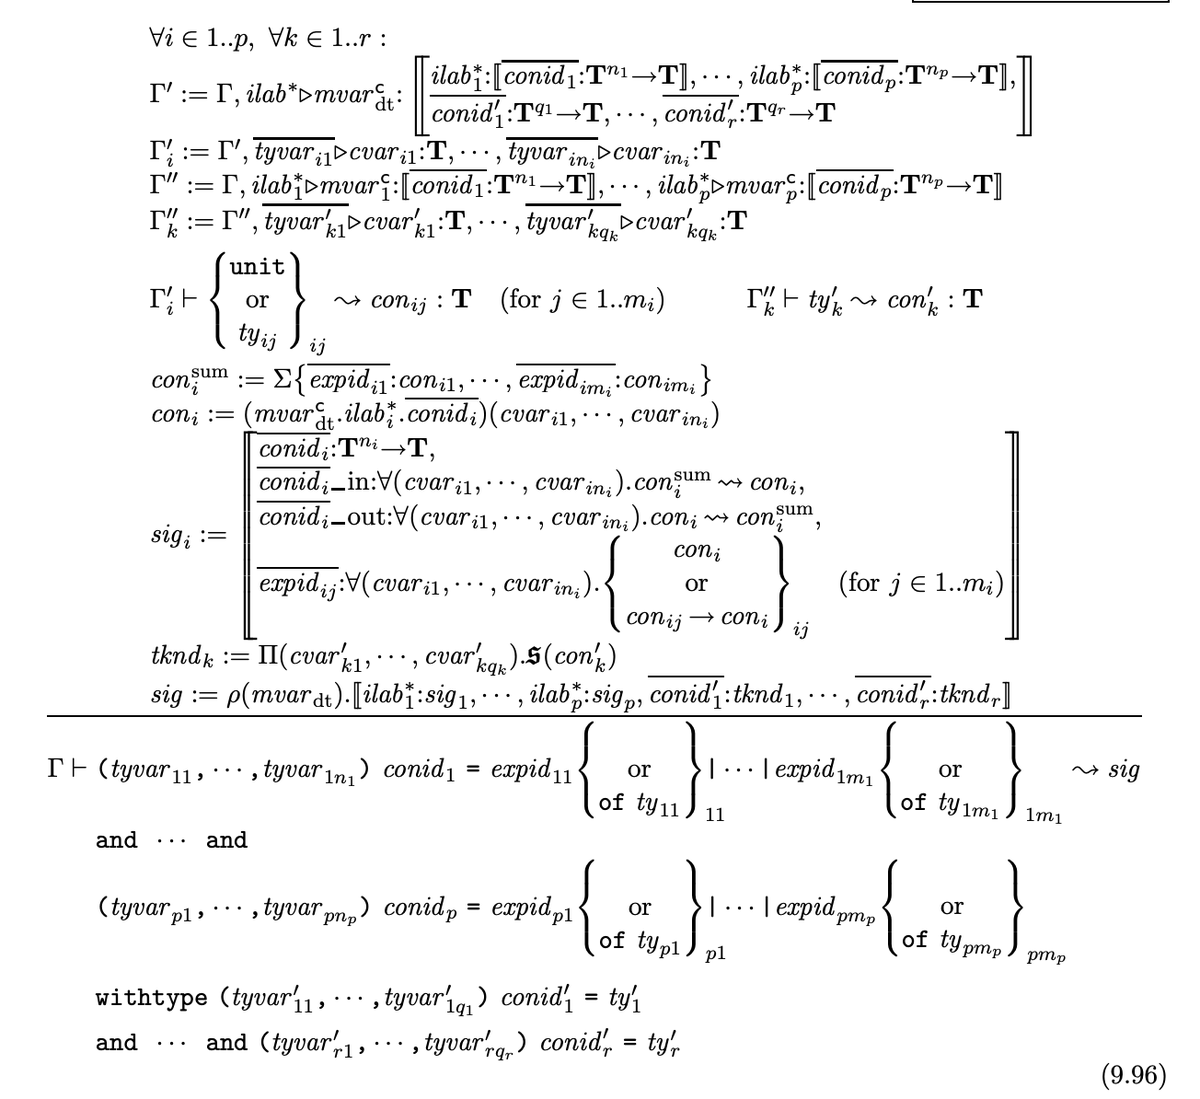 ∀i ∈ 1..p, ∀k ∈ 1..r :
Γ′ := Γ, ilab*▷mvar^c_dt: ⟦ \overline{ilab}^*_1:⟦\overline{conid_1}:T^{n_1}→T⟧, ···, ilab^*_p:⟦\overline{conid_p}:T^{n_p}→T⟧,
\overline{conid′_1}:T^{q_1}→T, ···, \overline{conid′_r}:T^{q_r}→T ⟧
Γ′_i := Γ′, \overline{tyvar_{i1}}▷cvar_{i1}:T, ···, \overline{tyvar_{in_i}}▷cvar_{in_i}:T
Γ″ := Γ, ilab^*_1▷mvar^c_1:⟦\overline{conid_1}:T^{n_1}→T⟧, ···, ilab^*_p▷mvar^c_p:⟦\overline{conid_p}:T^{n_p}→T⟧
Γ″_k := Γ″, \overline{tyvar′_{k1}}▷cvar′_{k1}:T, ···, \overline{tyvar′_{kq_k}}▷cvar′_{kq_k}:T
Γ′_i ⊢ { unit or ty_{ij} }_{ij} ⇝ con_{ij} : T (for j ∈ 1..m_i) Γ″_k ⊢ ty′_k ⇝ con′_k : T
con^{sum}_i := Σ{\overline{expid_{i1}}:con_{i1}, ···, \overline{expid_{im_i}}:con_{im_i}}
con_i := (mvar^c_dt.ilab^*_i.\overline{conid_i})(cvar_{i1}, ···, cvar_{in_i})
sig_i := ⟦ \overline{conid_i}:T^{n_i}→T,
\overline{conid_i}_in:∀(cvar_{i1}, ···, cvar_{in_i}).con^{sum}_i ⇝ con_i,
\overline{conid_i}_out:∀(cvar_{i1}, ···, cvar_{in_i}).con_i ⇝ con^{sum}_i,
\overline{expid_{ij}}:∀(cvar_{i1}, ···, cvar_{in_i}).{ con_i or con_{ij} → con_i }_{ij} (for j ∈ 1..m_i) ⟧
tknd_k := Π(cvar′_{k1}, ···, cvar′_{kq_k}).𝕾(con′_k)
sig := ρ(mvar_dt).⟦ilab^*_1:sig_1, ···, ilab^*_p:sig_p, \overline{conid′_1}:tknd_1, ···, \overline{conid′_r}:tknd_r⟧
Γ ⊢ (tyvar_{11}, ···, tyvar_{1n_1}) conid_1 = expid_{11} { or of ty_{11} }_{11} | ··· | expid_{1m_1} { or of ty_{1m_1} }_{1m_1} ⇝ sig
and ··· and
(tyvar_{p1}, ···, tyvar_{pn_p}) conid_p = expid_{p1} { or of ty_{p1} }_{p1} | ··· | expid_{pm_p} { or of ty_{pm_p} }_{pm_p}
withtype (tyvar′_{11}, ···, tyvar′_{1q_1}) conid′_1 = ty′_1
and ··· and (tyvar′_{r1}, ···, tyvar′_{rq_r}) conid′_r = ty′_r
(9.96)